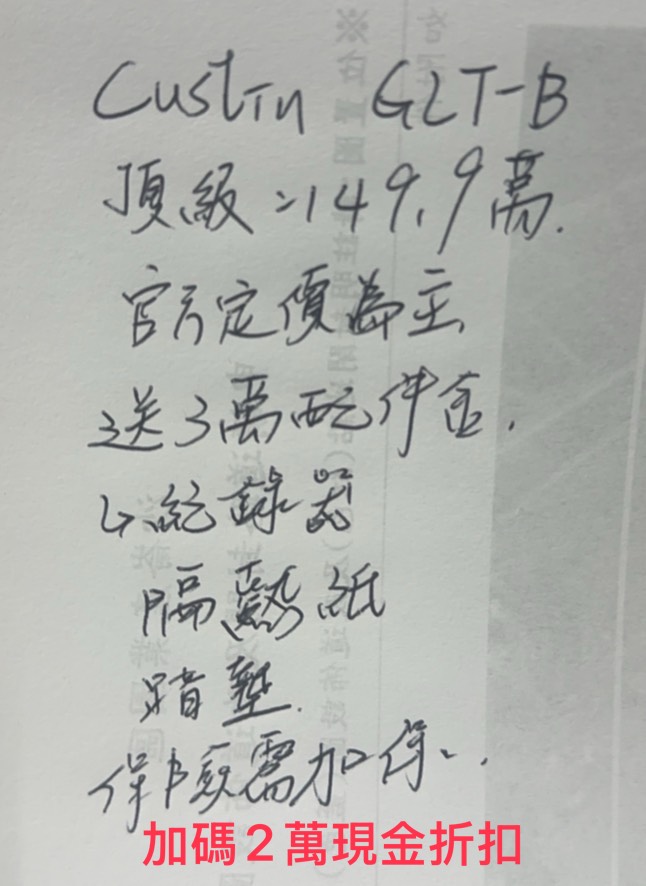 Custin GLT-B
頂級：149.9萬.
官方定價為主
送3萬配件金.
↳紀錄器
隔熱紙
踏墊.
保險需加保..
加碼2萬現金折扣